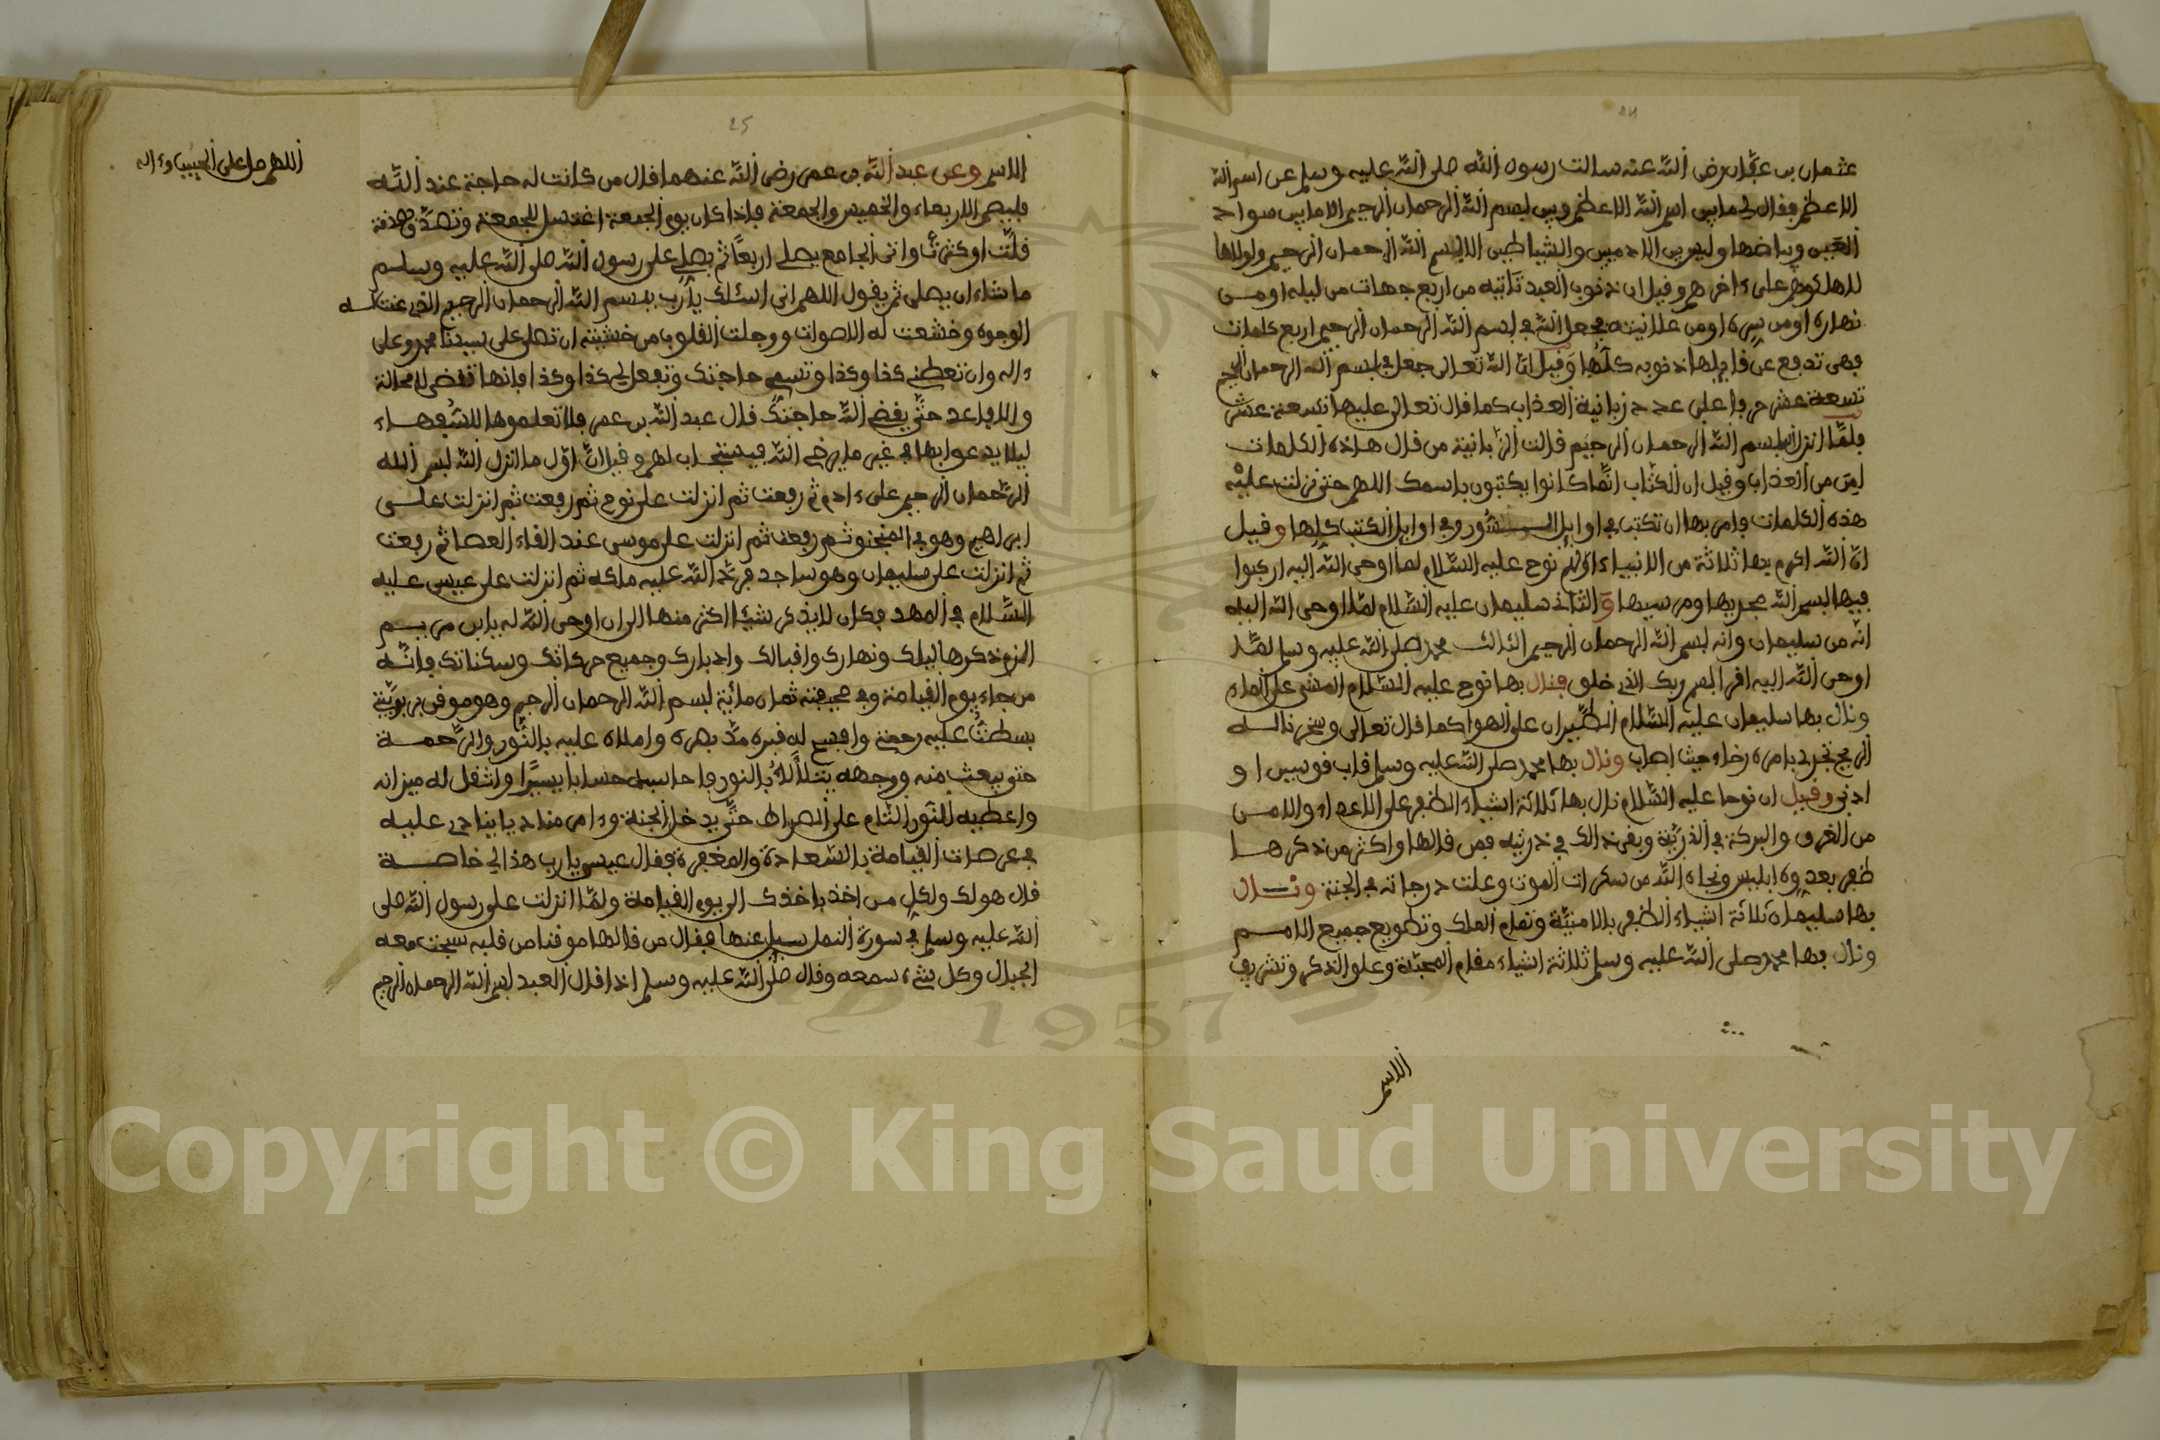 24
عثمان بن عفان رضي الله عنه سالت رسول الله صلى الله عليه وسلم عن اسم الله
الاعظم فقال لي ما بين اسم الله الاعظم وبين بسم الله الرحمان الرحيم الا ما بين سواد
العين وبياضها وليس بين الادميين والشياطين الا بسم الله الرحمان الرحيم ولولاها
لاهلكوهم على ءاخرهم وقيل ان ذنوب العبد تاتيه من اربع جهات من ليله او من
نهاره او من سره او من علانيته فجعل الله في بسم الله الرحمان الرحيم اربع كلمات
فهي تدفع عن قايلها ذنوبه كلها وقيل ان الله تعالى جعل في بسم الله الرحمان الرحيم
تسعة عشر حرفا على عدد زبانية العذاب كما قال تعالى عليها تسعة عشر
فلما انزل بسم الله الرحمان الرحيم قالت الزبانية من قال هاذه الكلمات
ليس من العذاب وقيل ان الكتاب انما كانوا يكتبون باسمك اللهم حتى نزلت عليه
هذه الكلمات فامر بها ان تكتب في اوايل السور وفي اوايل الكتب كلها وقيل
ان الله اكرم بها ثلاثة من الانبياء اولهم نوح عليه السلام لما اوحى الله اليه اركبوا
فيها بسم الله مجريها ومرسيها والثاني سليمان عليه السلام لما اوحى الله اليه
انه من سليمان وانه بسم الله الرحمان الرحيم الثالث محمد صلى الله عليه وسلم لما
اوحى الله اليه اقرا باسم ربك الذي خلق فنال بها نوح عليه السلام المشي على الماء
ونال بها سليمان عليه السلام الطيران على الهوا كما قال تعالى وسخرنا له
الريح تجري بامره رخاء حيث اصاب ونال بها محمد صلى الله عليه وسلم قاب قوسين او
ادنى وقيل ان نوحا عليه السلام نال بها ثلاثة اشياء الظفر على الاعداء والامن
من الغرق والبركة في الذرية وبقي ذالك في ذريته فمن قالها واكثر من ذكرها
ظفر بعدوه ابليس ونجاه الله من سكرات الموت وعلت درجاته في الجنة ونال
بها سليمان ثلاثة اشياء الظفر بالامنية وتمام الملك وتطويع جميع الامم
ونال بها محمد صلى الله عليه وسلم ثلاثة اشياء مقام المحبة وعلو الذكر وتشريف
الاسم
25
اللهم صل على الحبيب وءاله
الاسم وعن عبد الله بن عمر رضي الله عنهما قال من كانت له حاجة عند الله
فليصم الاربعاء والخميس والجمعة فاذا كان يوم الجمعة اغتسل للجمعة وتصدق بصدقة
قلت او كثرت واتى الجامع يصلي اربعا ثم يصلي على رسول الله صلى الله عليه وسلم
ما شاء ان يصلي ثم يقول اللهم اني اسئلك يا رب ببسم الله الرحمان الرحيم الذي عنت له
الوجوه وخشعت له الاصوات ووجلت القلوب من خشيته ان تصلي على سيدنا محمد وعلى
ءاله وان تعطني كذا وكذا وتسمي حاجتك وتفعل لي كذا وكذا فانها تقضى لا محالة
والا فاعد حتى يقضي الله حاجتك قال عبد الله بن عمر فلا تعلموها للسفهاء
ليلا يدعوا بها في غير ما يرضي الله فيستجاب لهم وقيل ان اول ما انزل الله بسم الله
الرحمان الرحيم على ءادم ثم رفعت ثم انزلت على نوح ثم رفعت ثم انزلت على
ابراهيم وهو في المنجنو ثم رفعت ثم انزلت على موسى عند القاء العصا ثم رفعت
ثم انزلت على سليمان وهو ساجد فرد الله عليه ملكه ثم انزلت على عيسى عليه
السلام في المهد فكان لا يذكر شيئا اكثر منها الى ان اوحى الله له يا ابن مريم
الزم ذكرها ليلك ونهارك واقبالك وادبارك وجميع حركاتك وسكناتك فانه
من جاء يوم القيامة وفي صحيفته ثمان مائة بسم الله الرحمان الرحيم وهو موقن بربوبيته
بسطت عليه رحمتي وافسح له قبره مد بصره واملاه عليه بالنور والرحمة
حتى يبعث منه ووجهه يتلالا بالنور واحاسبه حسابا يسيرا واثقل له ميزانه
واعطيه النور التام على الصراط حتى يدخل الجنة وءامر مناديا ينادي عليه
في عرصات القيامة بالسعادة والمغفرة فقال عيسى يا رب هذا لي خاصة
قال هو لك ولكل من اخذ باخذك الى يوم القيامة ولما انزلت على رسول الله صلى
الله عليه وسلم في سورة النمل سيل عنها فقال من قالها موقنا من قلبه سبحت معه
الجبال وكل شيء سمعه وقال صلى الله عليه وسلم اذا قال العبد بسم الله الرحمان الرحيم
1957
Copyright © King Saud University